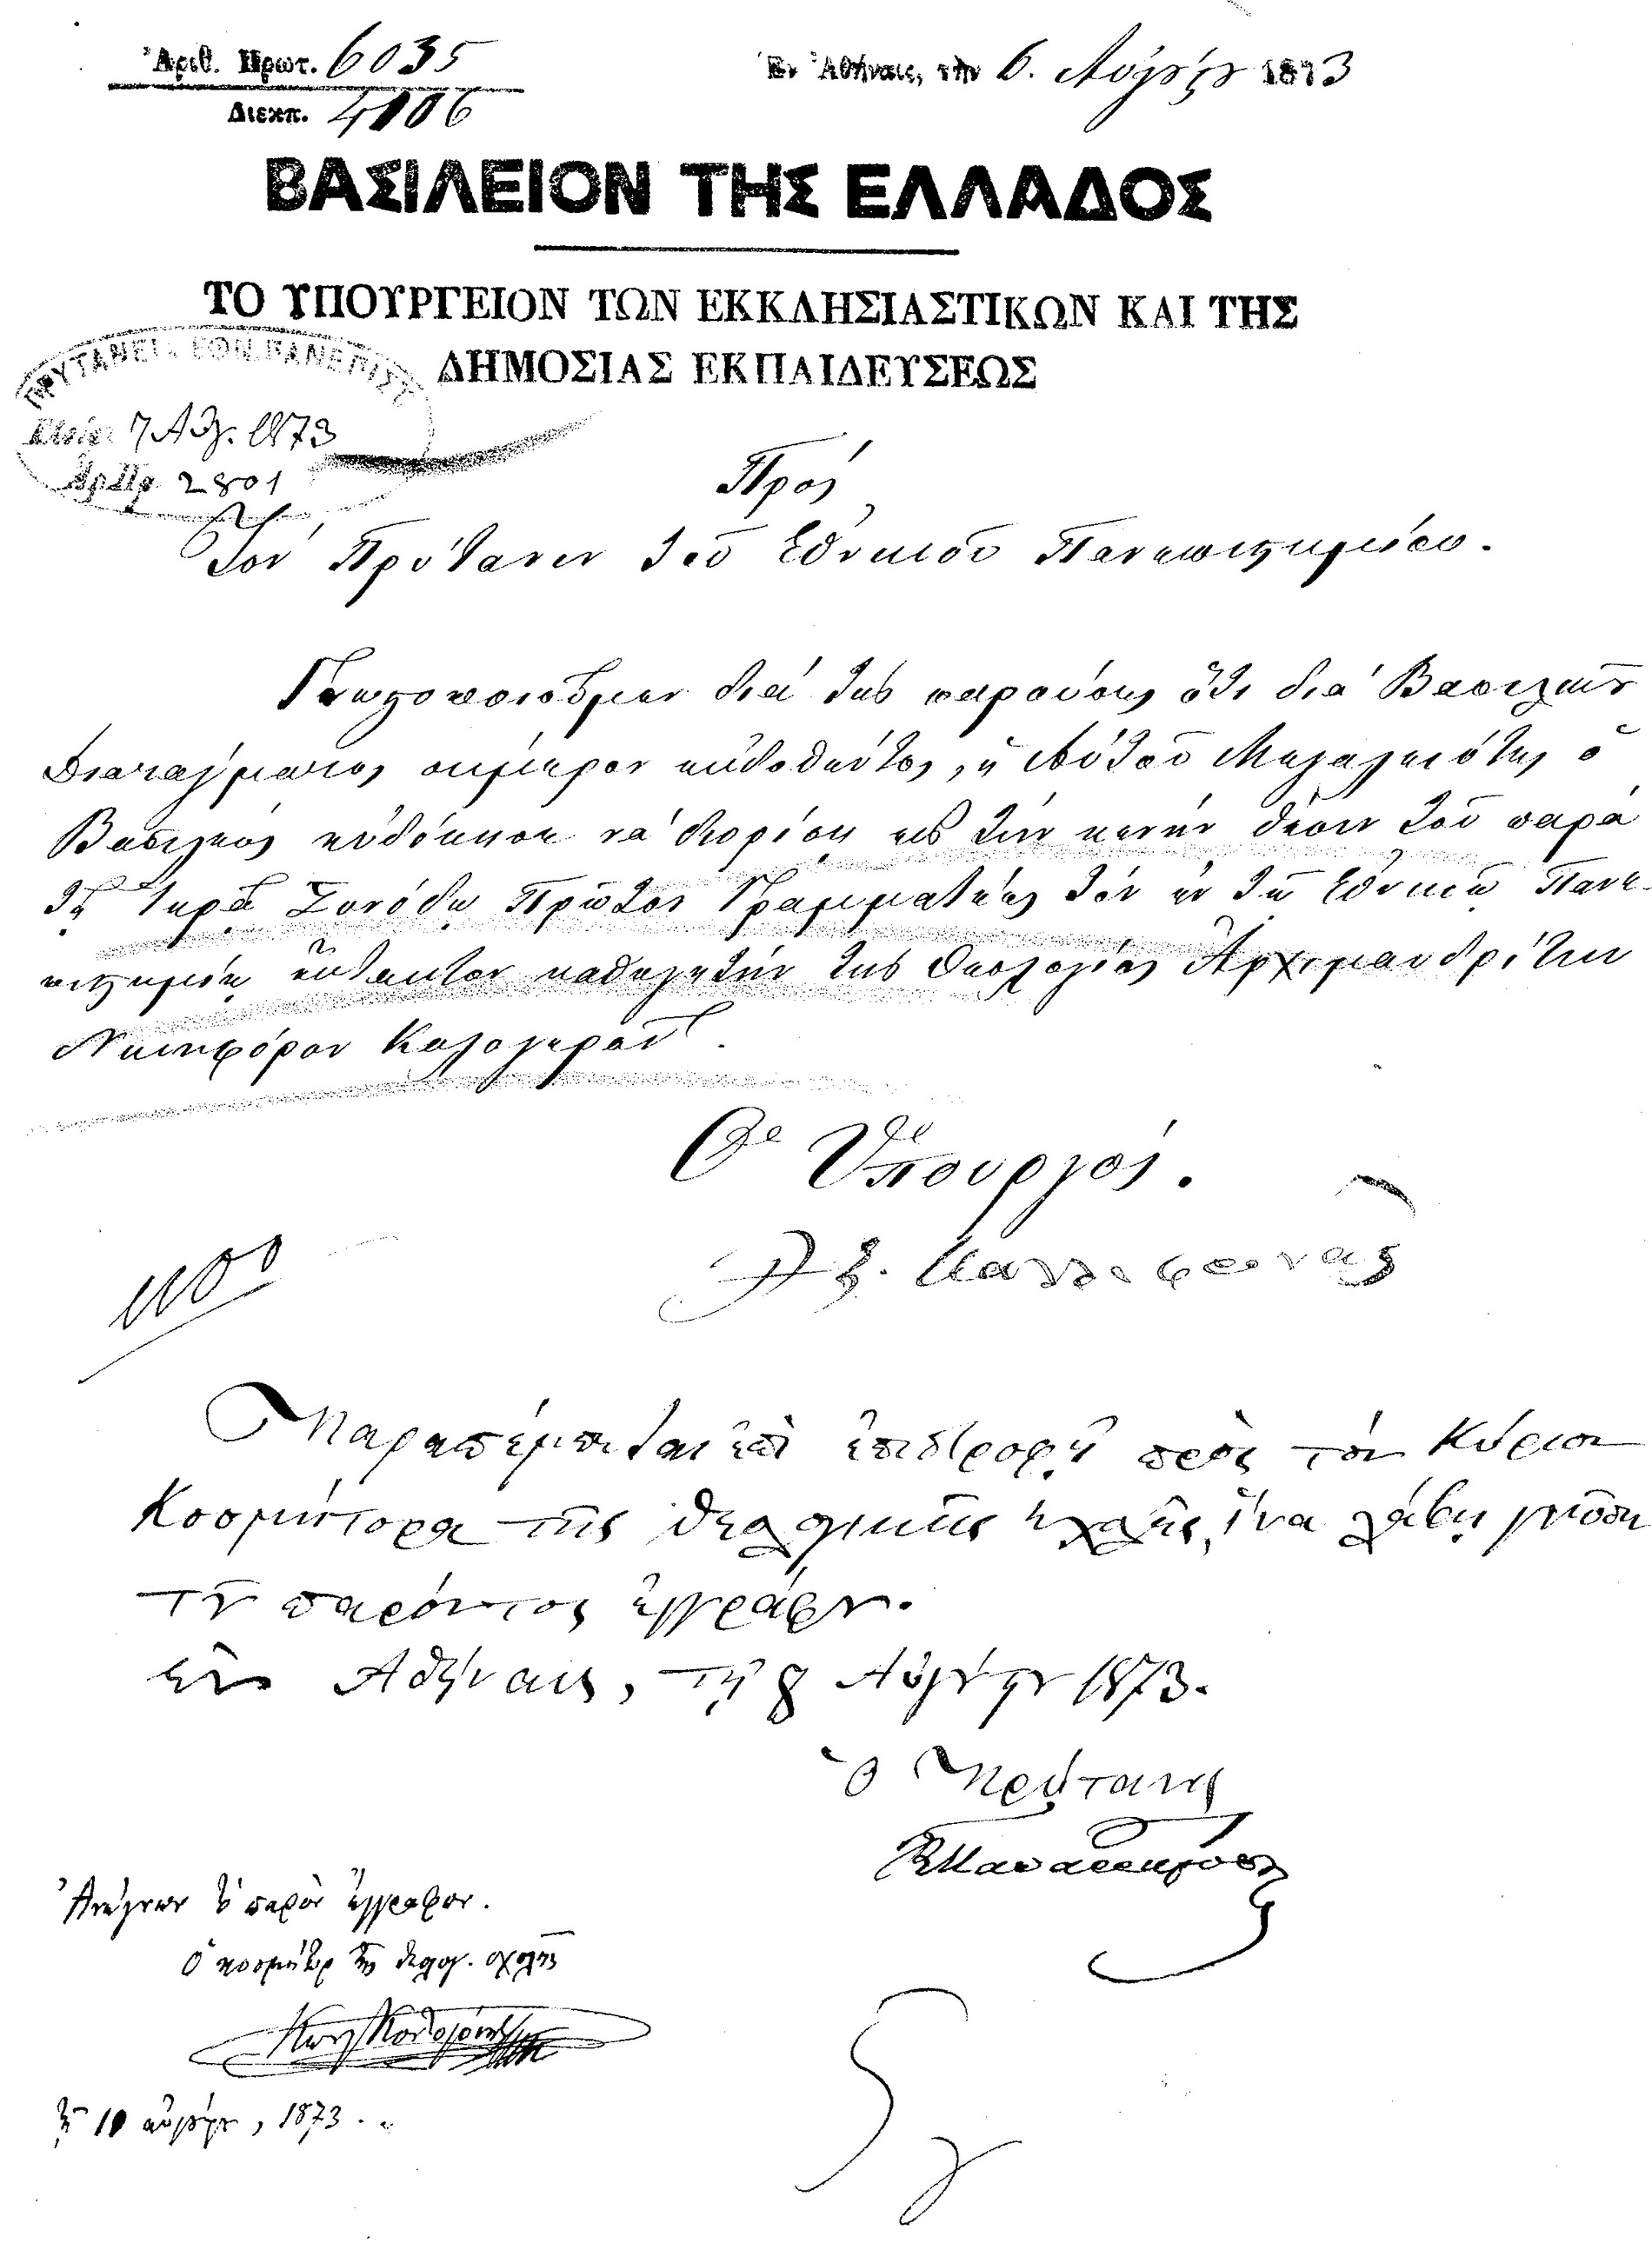 Ἀριθ. Πρωτ. 6035
Διεκπ. 4106
Ἐν Ἀθήναις, τὴν 6. Αὐγούστου 1873
ΒΑΣΙΛΕΙΟΝ ΤΗΣ ΕΛΛΑΔΟΣ
ΤΟ ΥΠΟΥΡΓΕΙΟΝ ΤΩΝ ΕΚΚΛΗΣΙΑΣΤΙΚΩΝ ΚΑΙ ΤΗΣ
ΔΗΜΟΣΙΑΣ ΕΚΠΑΙΔΕΥΣΕΩΣ
ΠΡΥΤΑΝΕΙ. ΕΘΝ. ΠΑΝΕΠΙΣΤ
7 Αὐγ. 1873
2801
Πρός
Τὸν Πρύτανιν τοῦ Ἐθνικοῦ Πανεπιστημείου.
Γνωστοποιοῦμεν διὰ τῆς παρούσης ὅτι διὰ Βασιλικοῦ
Διατάγματος σήμερον ἐκδοθέντος, ἡ Αὐτοῦ Μεγαλειότης ὁ
Βασιλεὺς εὐδόκησε νὰ διορίσῃ εἰς τὴν κενὴν θέσιν τοῦ παρὰ
τῇ Ἱερᾷ Συνόδῳ Πρώτου Γραμματέως τὸν ἐν τῷ Ἐθνικῷ Πανε-
πιστημείῳ ἔκτακτον καθηγητὴν τῆς Θεολογίας Ἀρχιμανδρίτην
Νικηφόρον Καλογερᾶν.
Ὁ Ὑπουργός.
Παραπέμπεται ἐπὶ ἐπιστροφῇ πρὸς τὸν Κύριον
Κοσμήτορα τῆς Θεολογικῆς σχολῆς, ἵνα λάβῃ γνῶσιν
τοῦ παρόντος ἐγγράφου.
Ἐν Ἀθήναις, τῇ 8 Αὐγούστου 1873.
Ὁ Πρύτανις
Ἀνέγνων τὸ παρὸν ἔγγραφον.
Ὁ κοσμήτωρ τῆς θεολογ. σχολῆς
τῇ 10 αὐγούστου, 1873.